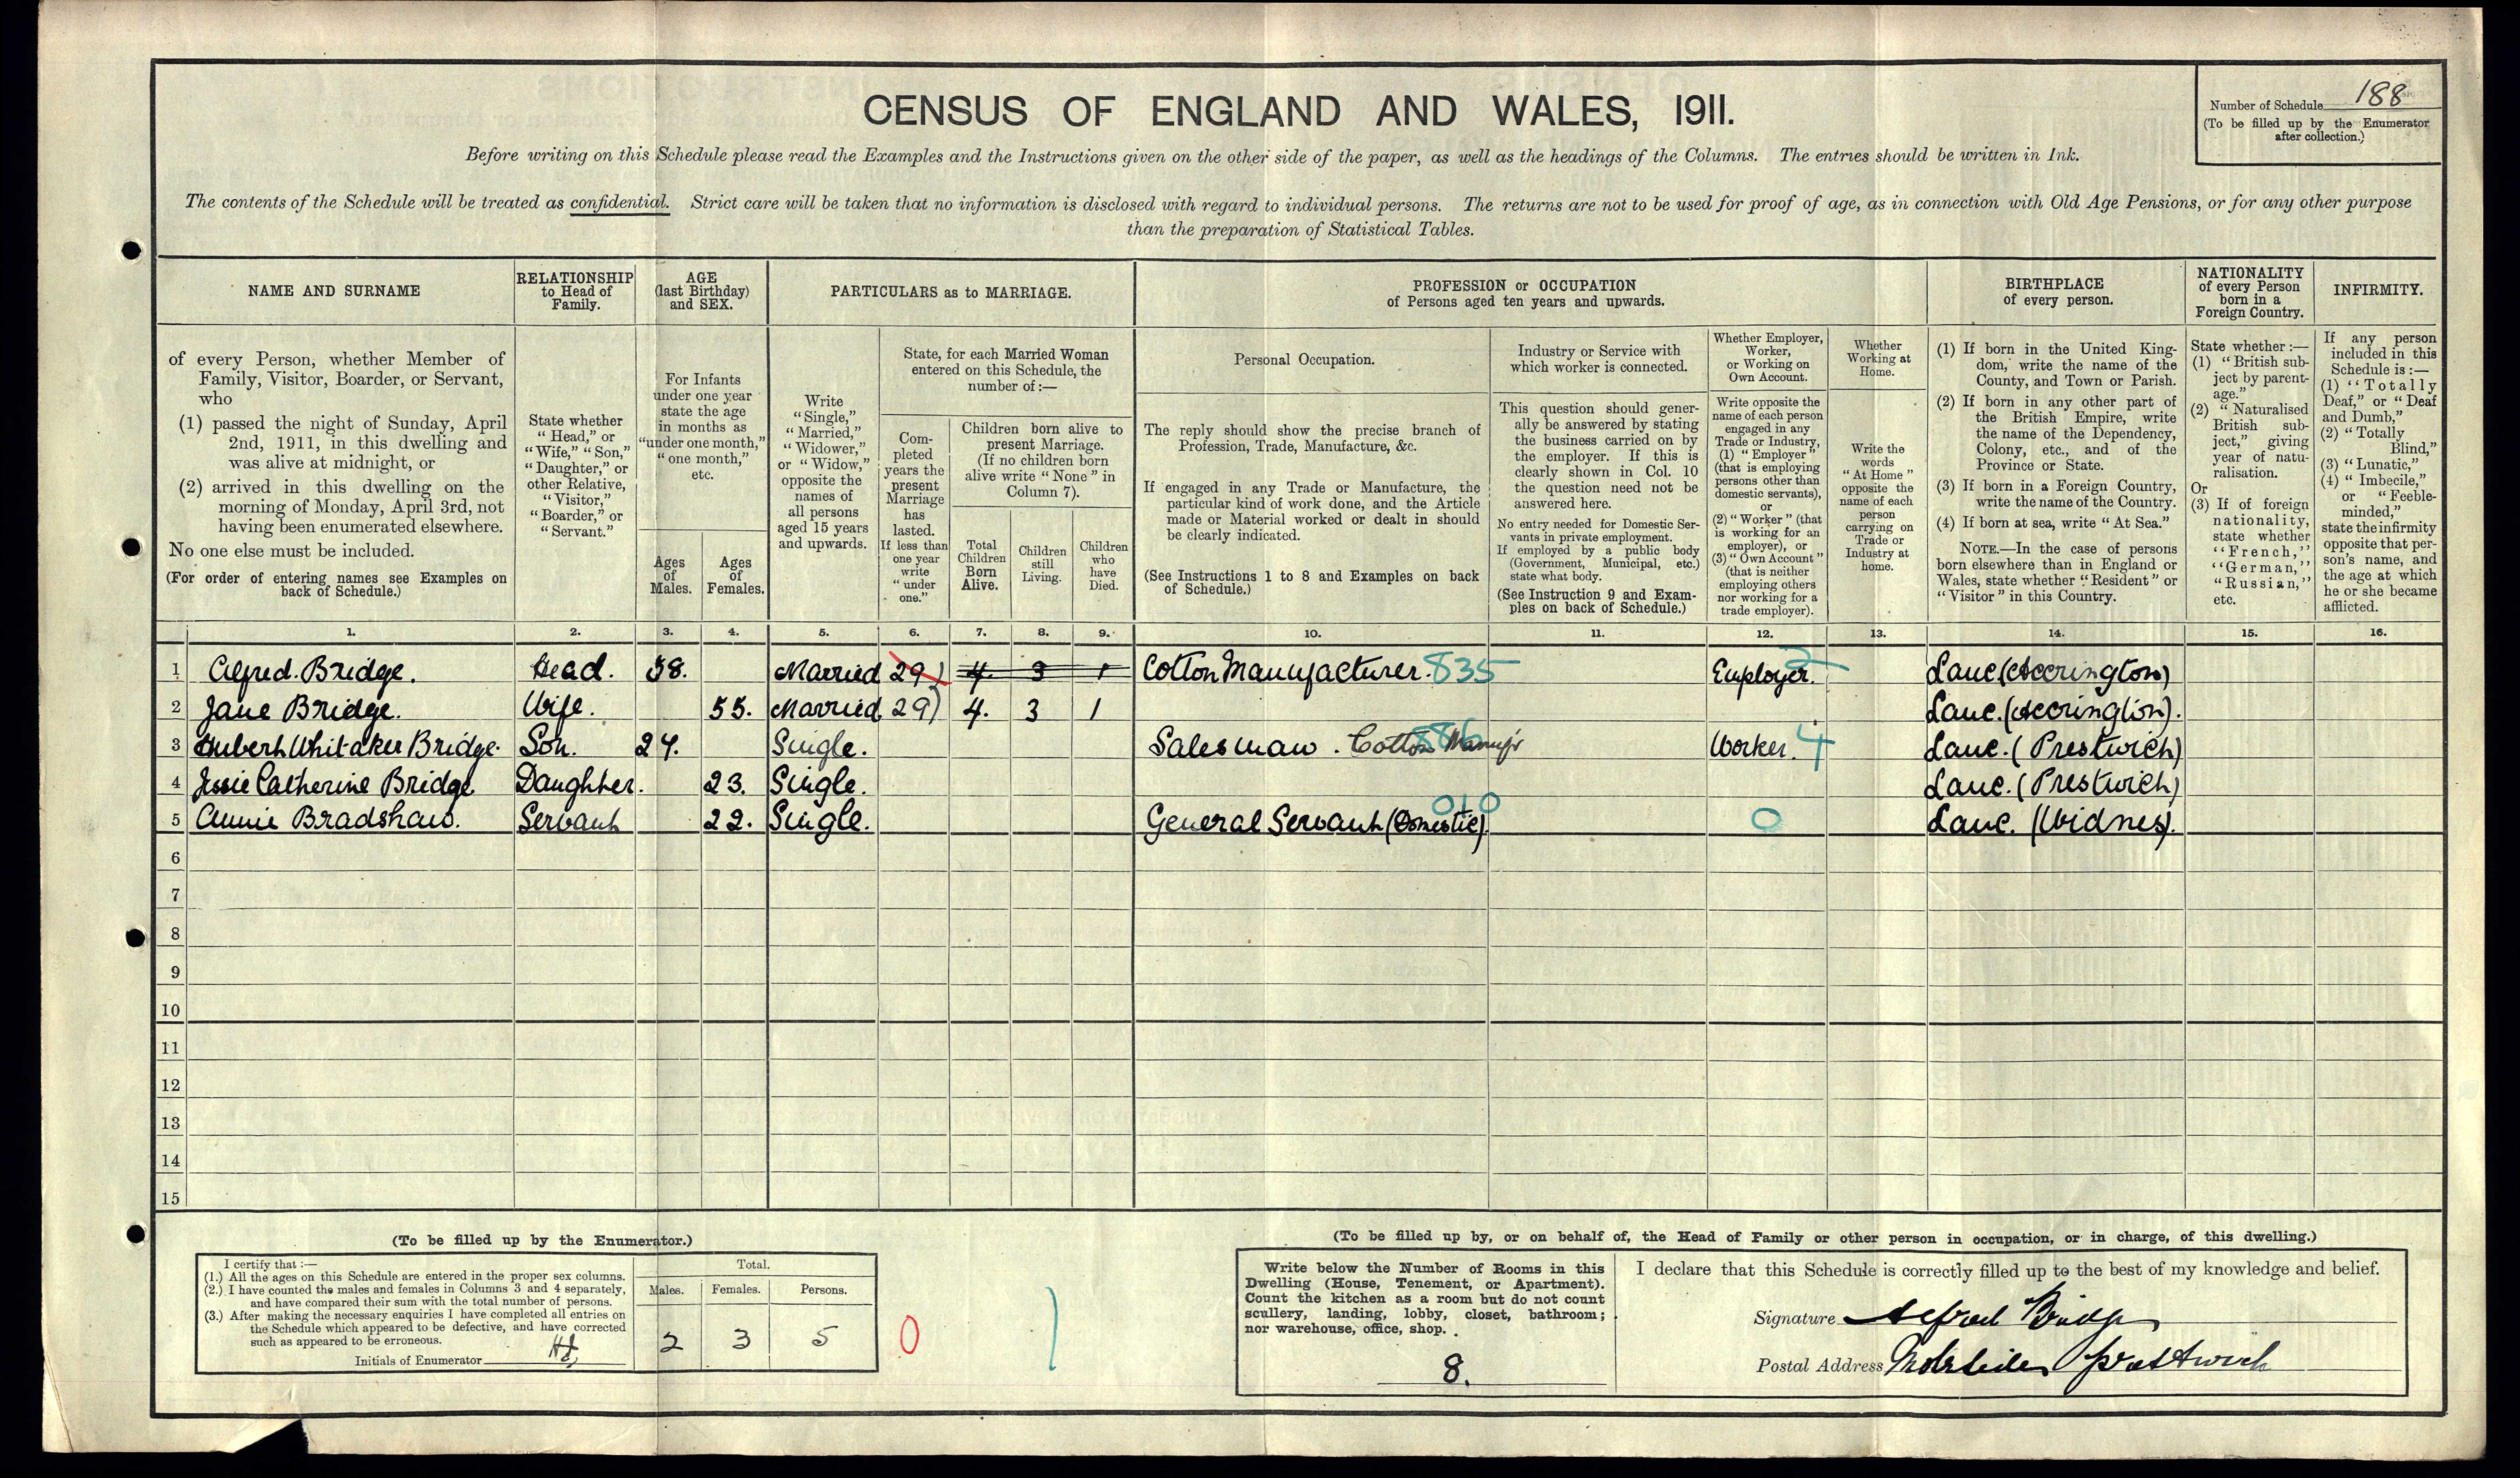 CENSUS OF ENGLAND AND WALES, 1911.
Number of Schedule 188
(To be filled up by the Enumerator
after collection.)
Before writing on this Schedule please read the Examples and the Instructions given on the other side of the paper, as well as the headings of the Columns. The entries should be written in Ink.
The contents of the Schedule will be treated as confidential. Strict care will be taken that no information is disclosed with regard to individual persons. The returns are not to be used for proof of age, as in connection with Old Age Pensions, or for any other purpose
than the preparation of Statistical Tables.
NAME AND SURNAME
RELATIONSHIP
to Head of
Family.
AGE
(last Birthday)
and SEX.
PARTICULARS as to MARRIAGE.
PROFESSION or OCCUPATION
of Persons aged ten years and upwards.
BIRTHPLACE
of every person.
NATIONALITY
of every Person
born in a
Foreign Country.
INFIRMITY.
of every Person, whether Member of
Family, Visitor, Boarder, or Servant,
who
(1) passed the night of Sunday, April
2nd, 1911, in this dwelling and
was alive at midnight, or
(2) arrived in this dwelling on the
morning of Monday, April 3rd, not
having been enumerated elsewhere.
No one else must be included.
(For order of entering names see Examples on
back of Schedule.)
State whether
"Head," or
"Wife," "Son,"
"Daughter," or
other Relative,
"Visitor,"
"Boarder," or
"Servant."
For Infants
under one year
state the age
in months as
"under one month,"
"one month,"
etc.
Ages
of
Males.
Ages
of
Females.
Write
"Single,"
"Married,"
"Widower,"
or "Widow,"
opposite the
names of
all persons
aged 15 years
and upwards.
State, for each Married Woman
entered on this Schedule, the
number of:—
Com-
pleted
years the
present
Marriage
has
lasted.
If less than
one year
write
"under
one."
Children born alive to
present Marriage.
(If no children born
alive write "None" in
Column 7).
Total
Children
Born
Alive.
Children
still
Living.
Children
who
have
Died.
Personal Occupation.
The reply should show the precise branch of
Profession, Trade, Manufacture, &c.
If engaged in any Trade or Manufacture, the
particular kind of work done, and the Article
made or Material worked or dealt in should
be clearly indicated.
(See Instructions 1 to 8 and Examples on back
of Schedule.)
Industry or Service with
which worker is connected.
This question should gener-
ally be answered by stating
the business carried on by
the employer. If this is
clearly shown in Col. 10
the question need not be
answered here.
No entry needed for Domestic Ser-
vants in private employment.
If employed by a public body
(Government, Municipal, etc.)
state what body.
(See Instruction 9 and Exam-
ples on back of Schedule.)
Whether Employer,
Worker,
or Working on
Own Account.
Write opposite the
name of each person
engaged in any
Trade or Industry,
(1) "Employer"
(that is employing
persons other than
domestic servants),
or
(2) "Worker" (that
is working for an
employer), or
(3) "Own Account"
(that is neither
employing others
nor working for a
trade employer).
Whether
Working at
Home.
Write the
words
"At Home"
opposite the
name of each
person
carrying on
Trade or
Industry at
home.
(1) If born in the United King-
dom, write the name of the
County, and Town or Parish.
(2) If born in any other part of
the British Empire, write
the name of the Dependency,
Colony, etc., and of the
Province or State.
(3) If born in a Foreign Country,
write the name of the Country.
(4) If born at sea, write "At Sea."
NOTE.—In the case of persons
born elsewhere than in England or
Wales, state whether "Resident" or
"Visitor" in this Country.
State whether:—
(1) "British sub-
ject by parent-
age."
(2) "Naturalised
British sub-
ject," giving
year of natu-
ralisation.
Or
(3) If of foreign
nationality,
state whether
"French,"
"German,"
"Russian,"
etc.
If any person
included in this
Schedule is:—
(1) "Totally
Deaf," or "Deaf
and Dumb,"
(2) "Totally
Blind,"
(3) "Lunatic,"
(4) "Imbecile,"
or "Feeble-
minded,"
state the infirmity
opposite that per-
son's name, and
the age at which
he or she became
afflicted.
1. 2. 3. 4. 5. 6. 7. 8. 9. 10. 11. 12. 13. 14. 15. 16.
1 Alfred. Bridge. Head. 58. Married 29) 4. 3 1 Cotton Manufacturer. 835 Employer. 2 Lanc. (Accrington)
2 Jane Bridge. Wife. 55. Married 29) 4. 3 1 Lanc. (Accrington).
3 Hubert Whitaker Bridge. Son. 24. Single. Salesman. Cotton Manufr 886 Worker. 4 Lanc. (Prestwich)
4 Jessie Catherine Bridge Daughter. 23. Single. Lanc. (Prestwich)
5 Annie Bradshaw. Servant 22. Single. General Servant (Domestic). 010 0 Lanc. (Widnes).
6
7
8
9
10
11
12
13
14
15
(To be filled up by the Enumerator.)
I certify that:—
(1.) All the ages on this Schedule are entered in the proper sex columns.
(2.) I have counted the males and females in Columns 3 and 4 separately,
and have compared their sum with the total number of persons.
(3.) After making the necessary enquiries I have completed all entries on
the Schedule which appeared to be defective, and have corrected
such as appeared to be erroneous.
Initials of Enumerator
Total.
Males. Females. Persons.
2 3 5
0
(To be filled up by, or on behalf of, the Head of Family or other person in occupation, or in charge, of this dwelling.)
Write below the Number of Rooms in this
Dwelling (House, Tenement, or Apartment).
Count the kitchen as a room but do not count
scullery, landing, lobby, closet, bathroom;
nor warehouse, office, shop.
8.
I declare that this Schedule is correctly filled up to the best of my knowledge and belief.
Signature Alfred Bridge
Postal Address Prestwich